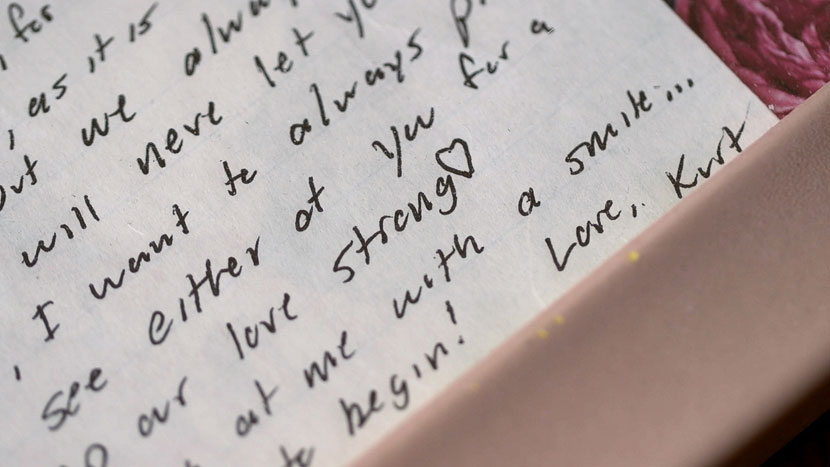 for
, as it is
we
will neve let
I want to always
see either at you for a
our love strong♡
at me with a smile...
to begin! Love, Kurt